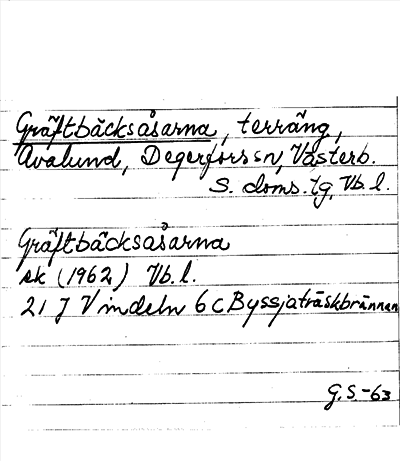 Gräftbäcksåsarna, terräng,
Avalund, Degerfors sn, Västerb.
S. doms. tg, Vb. l.
Gräftbäcksåsarna
ek (1962) Vb. l.
21 J Vindeln 6 c Byssjaträskbrännan
G. S. -63